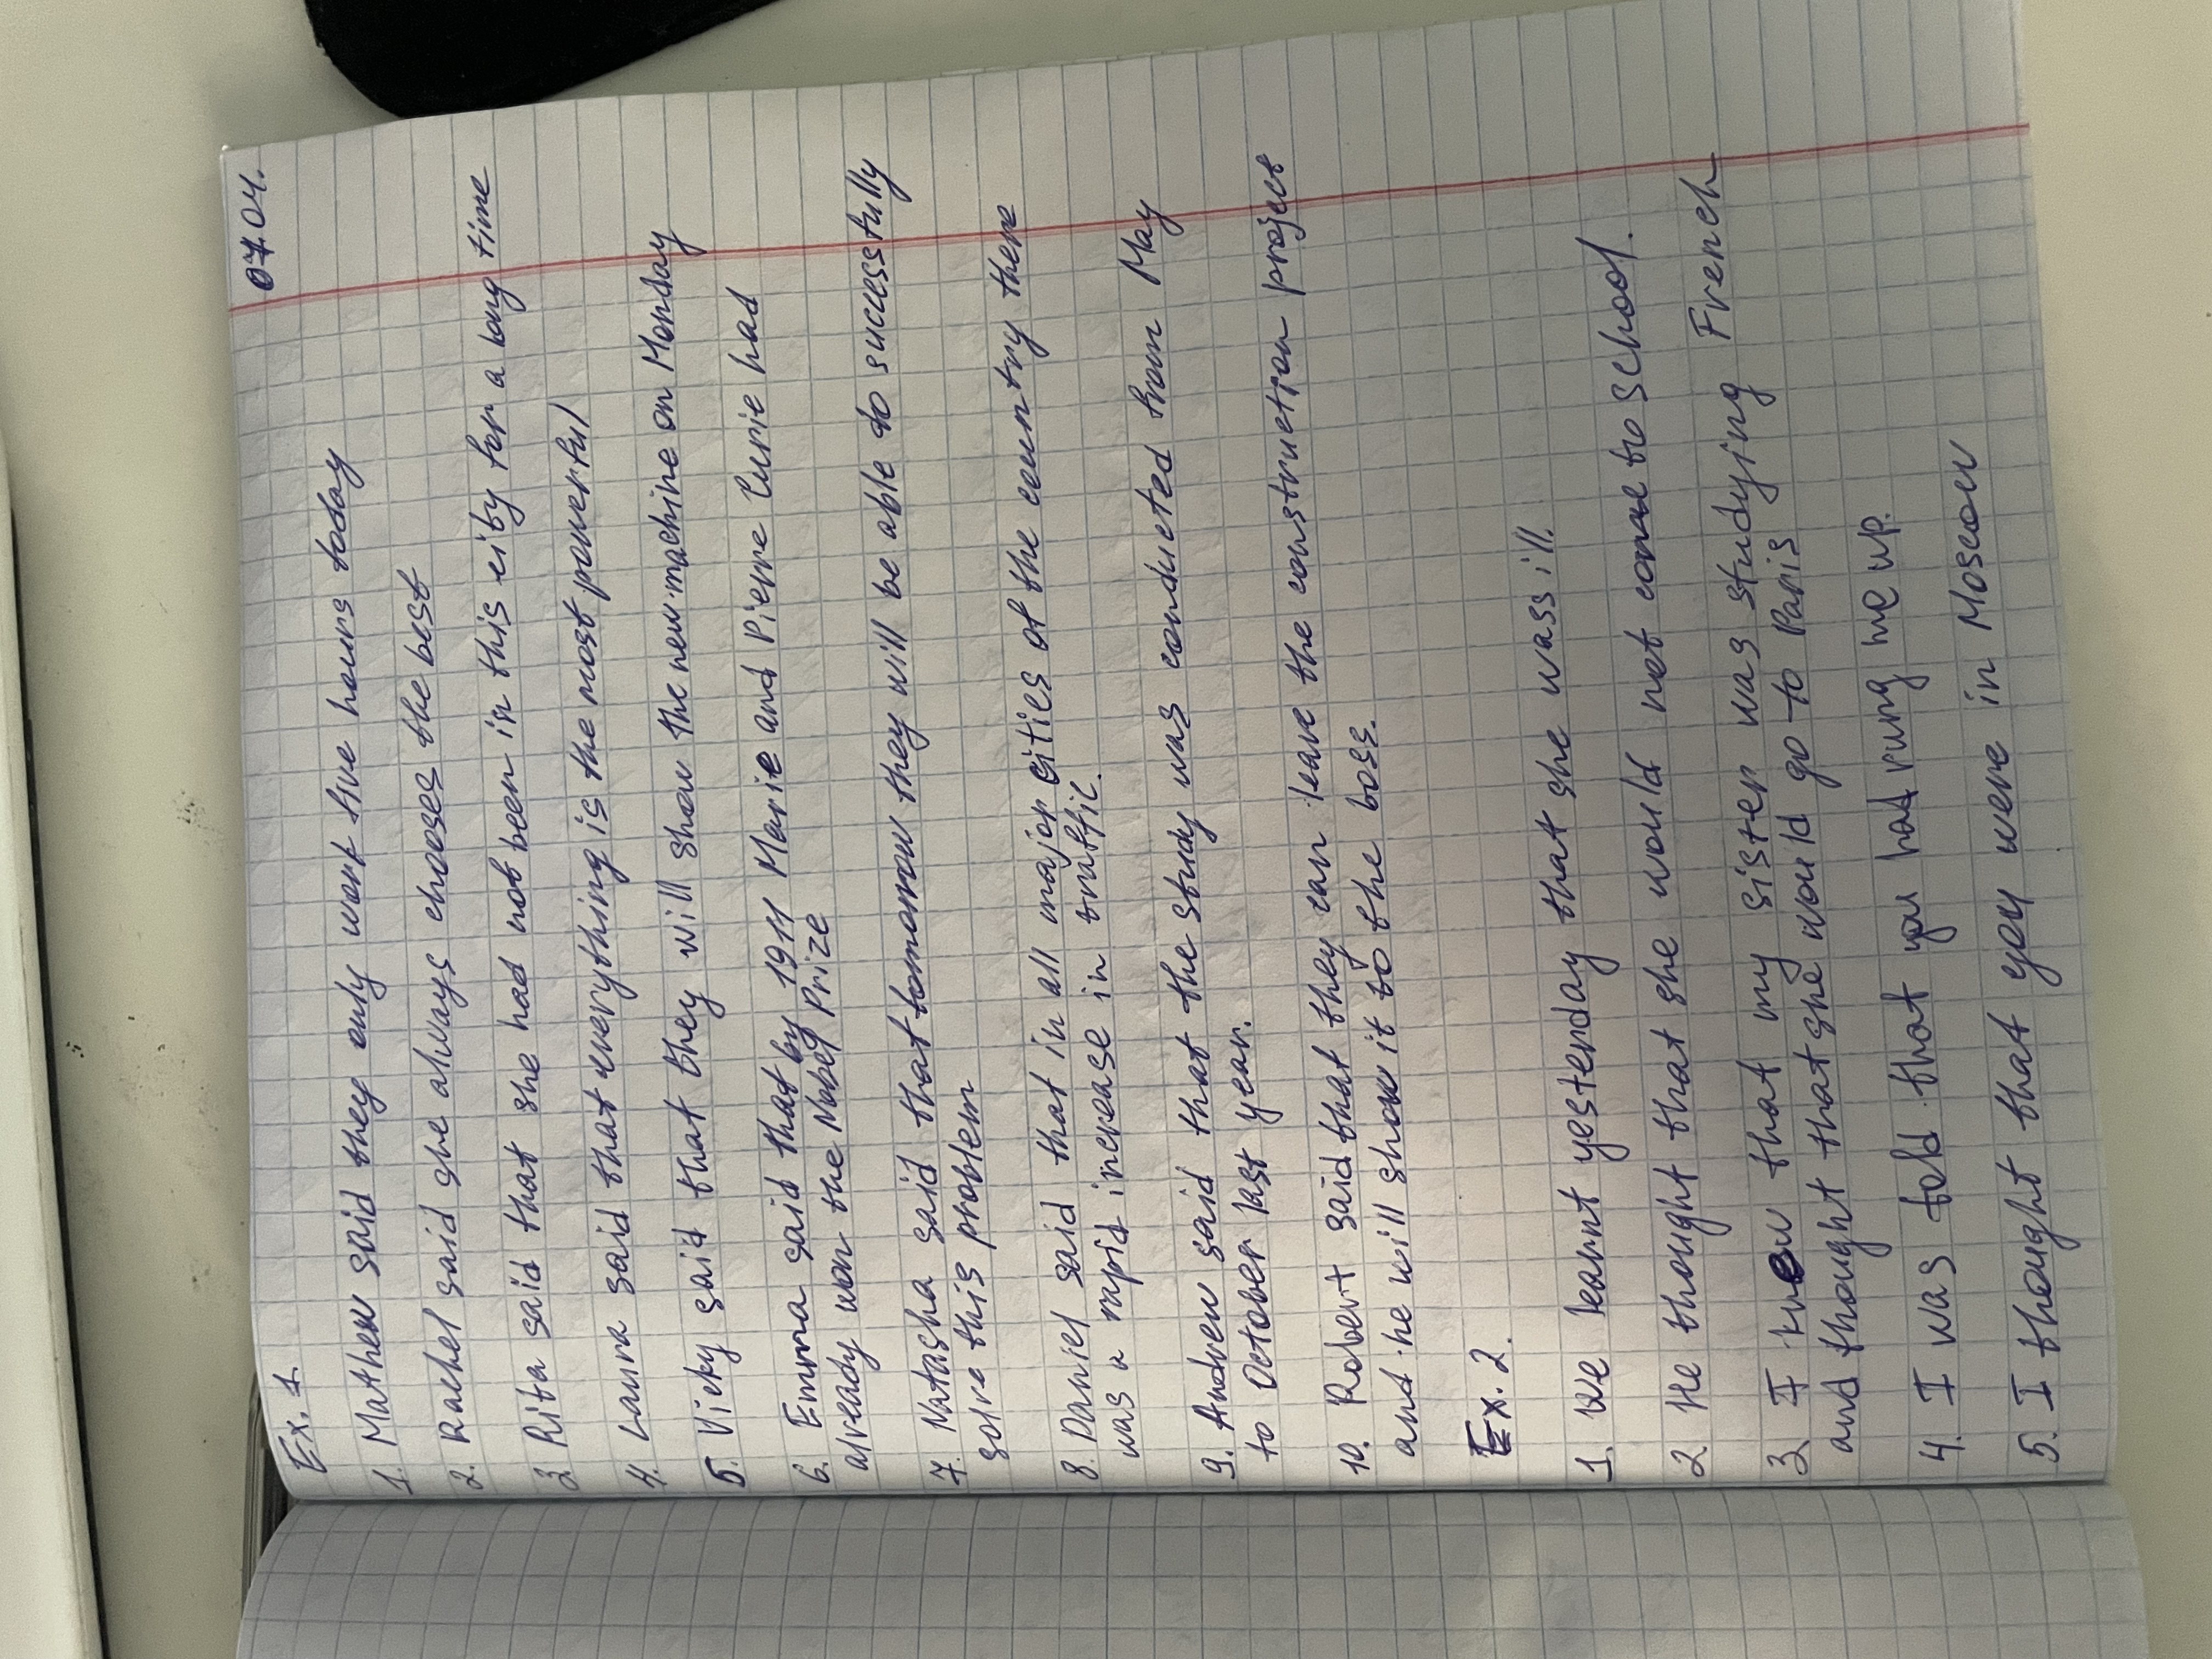 07.04.
Ex. 1
1. Mathew said they only work five hours today
2. Rachel said she always chooses the best
3 Rita said that she had not been in this city for a long time
4. Laura said that everything is the most powerful
5. Vicky said that they will show the new machine on Monday
6. Emma said that by 1911 Marie and Pierre Curie had
already won the Nobel Prize
7. Natasha said that tomorrow they will be able to successfully
solve this problem
8. Daniel said that in all major cities of the country there
was a rapid increase in traffic.
9. Andrew said that the study was conducted from May
to October last year.
10. Robert said that they can leave the construction project
and he will show it to the boss.
Ex. 2.
1. We learnt yesterday that she was ill.
2 He thought that she would not come to school.
3 I knew that my sister was studying French
and thought that she would go to Paris
4. I was told that you had rung me up.
5. I thought that you were in Moscow